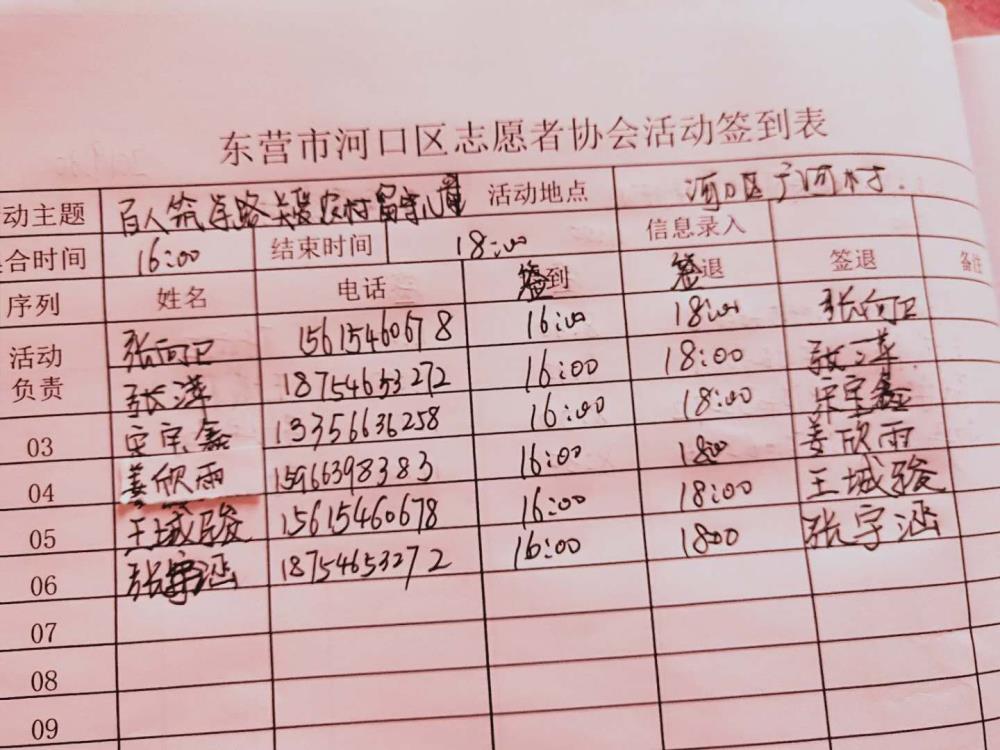 东营市河口区志愿者协会活动签到表
动主题 百人筑学路关爱农村留守儿童 活动地点 河口区广河村.
合时间 16:00 结束时间 18:00 信息录入
序列 姓名 电话 签到 签退 签退 备注
活动 张向卫 15615460678 16:00 18:00 张向卫
负责 张萍 18754653272 16:00 18:00 张萍
03 宋宝鑫 13356636258 16:00 18:00 宋宝鑫
04 姜欣雨 15966398383 16:00 18:00 姜欣雨
05 王城骏 15615460678 16:00 18:00 王城骏
06 张宇涵 18754653272 16:00 1800 张宇涵
07
08
09